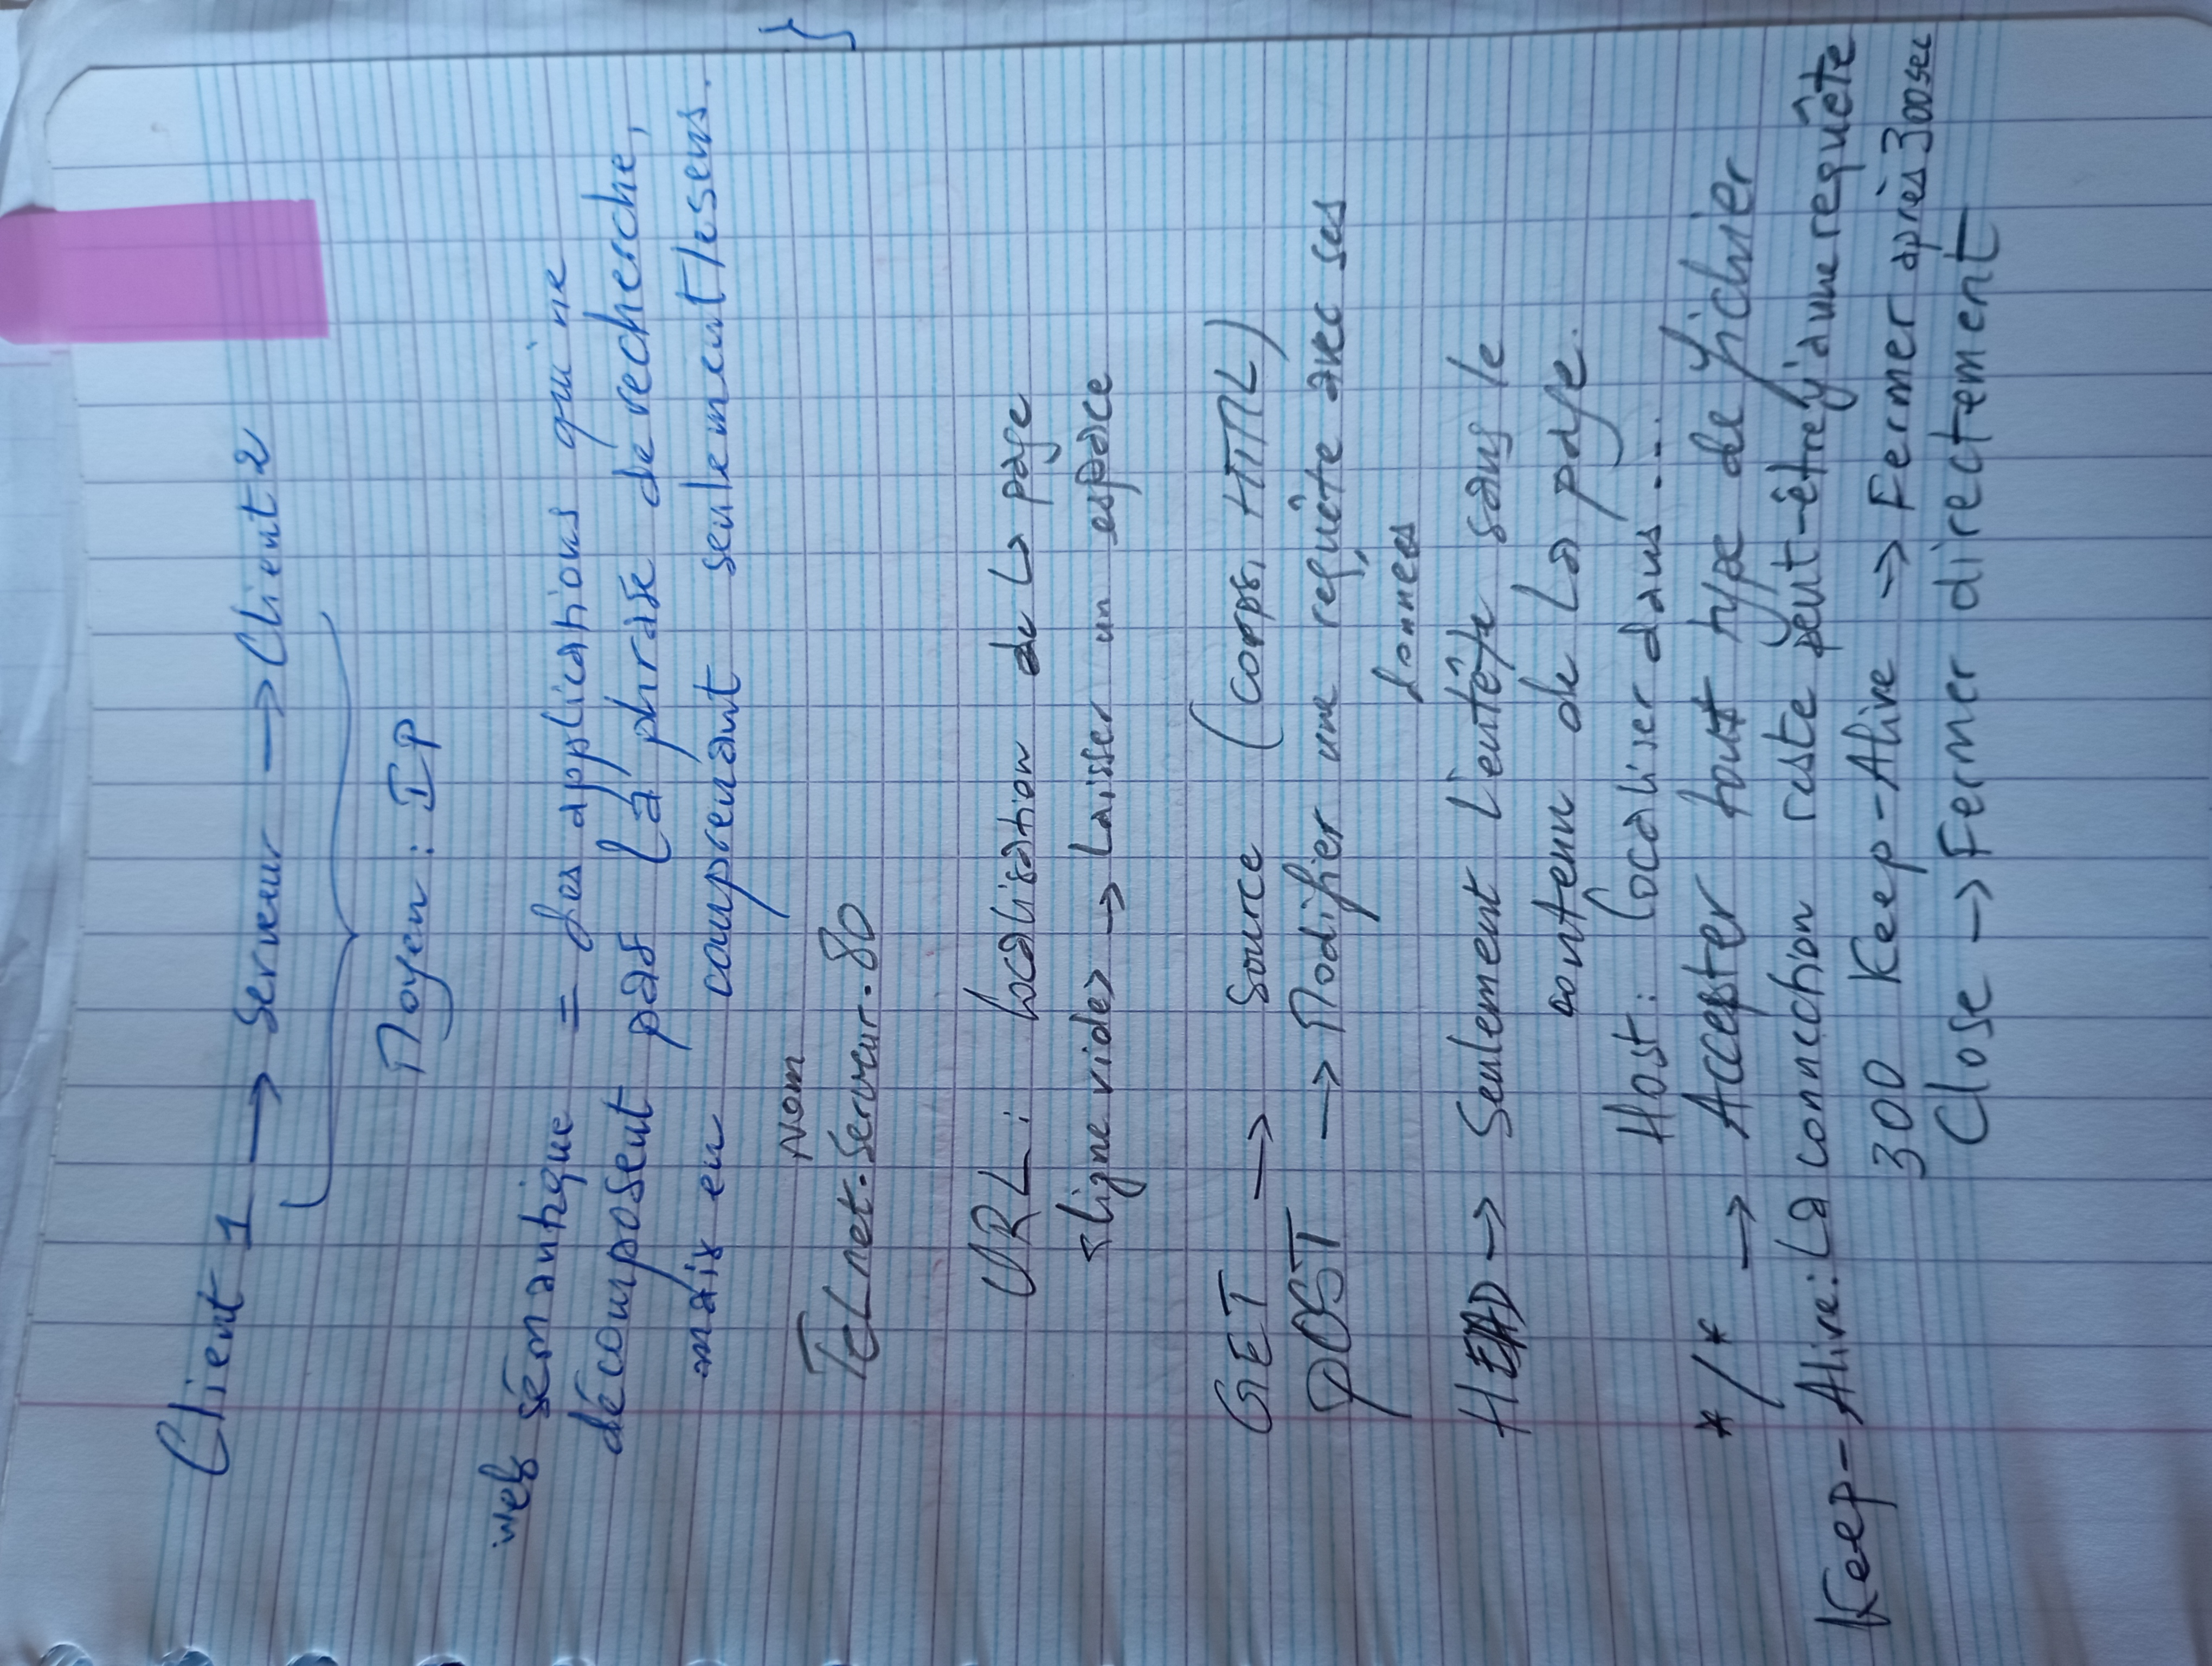 Client 1 → Serveur → Client 2
Moyen : IP
web sémantique = des applications qui ne
décomposent pas la phrase de recherche,
mais en comprenant seulement le sens.
Nom
TELnet.Serveur.80
URL : Localisation de la page
<ligne vide> → Laisser un espace
GET → Source (corps, HTML)
POST → Modifier une requête avec ses
données
HEAD → Seulement l'entête sans le
contenu de la page.
Host : Localiser dans ...
*/* → Accepter tout type de fichier
Keep-Alive : La connection reste peut-être y'a une requête
300 Keep-Alive → Fermer après 300 sec
Close → Fermer directement